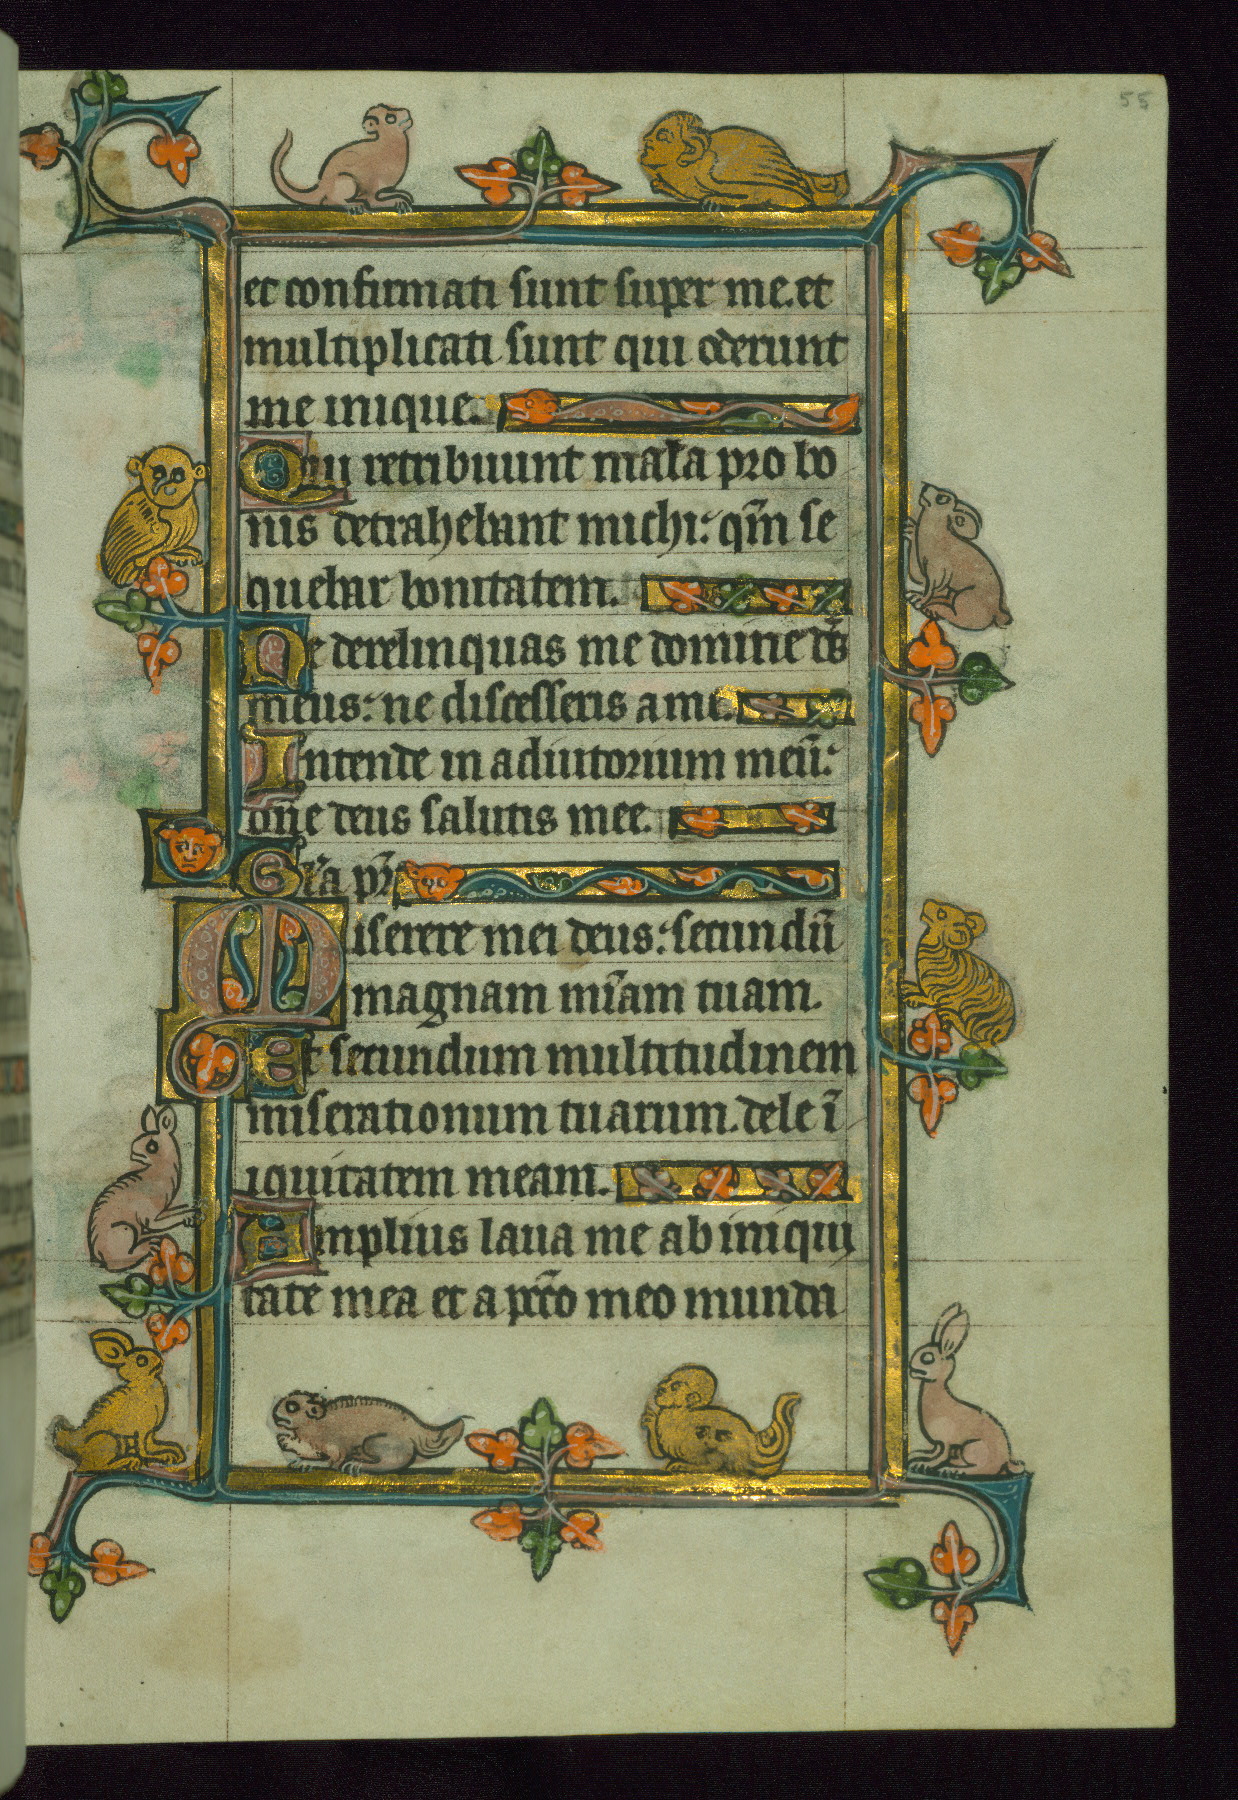 55
et confirmati sunt super me. et
multiplicati sunt qui oderunt
me inique.
Qui retribuunt mala pro bo
nis detrahebant michi: qm̄ se
quebar bonitatem.
Ne derelinquas me domine ds̄
meus: ne discesseris a me.
Intende in adiutorium meū:
dn̄e deus salutis mee.
Gľa pr̄i
Miserere mei deus: secundū
magnam mīam tuam.
Et secundum multitudinem
miserationum tuarum. dele ī
iquitatem meam.
Amplius laua me ab iniqui
tate mea et a pcc̄o meo munda
53